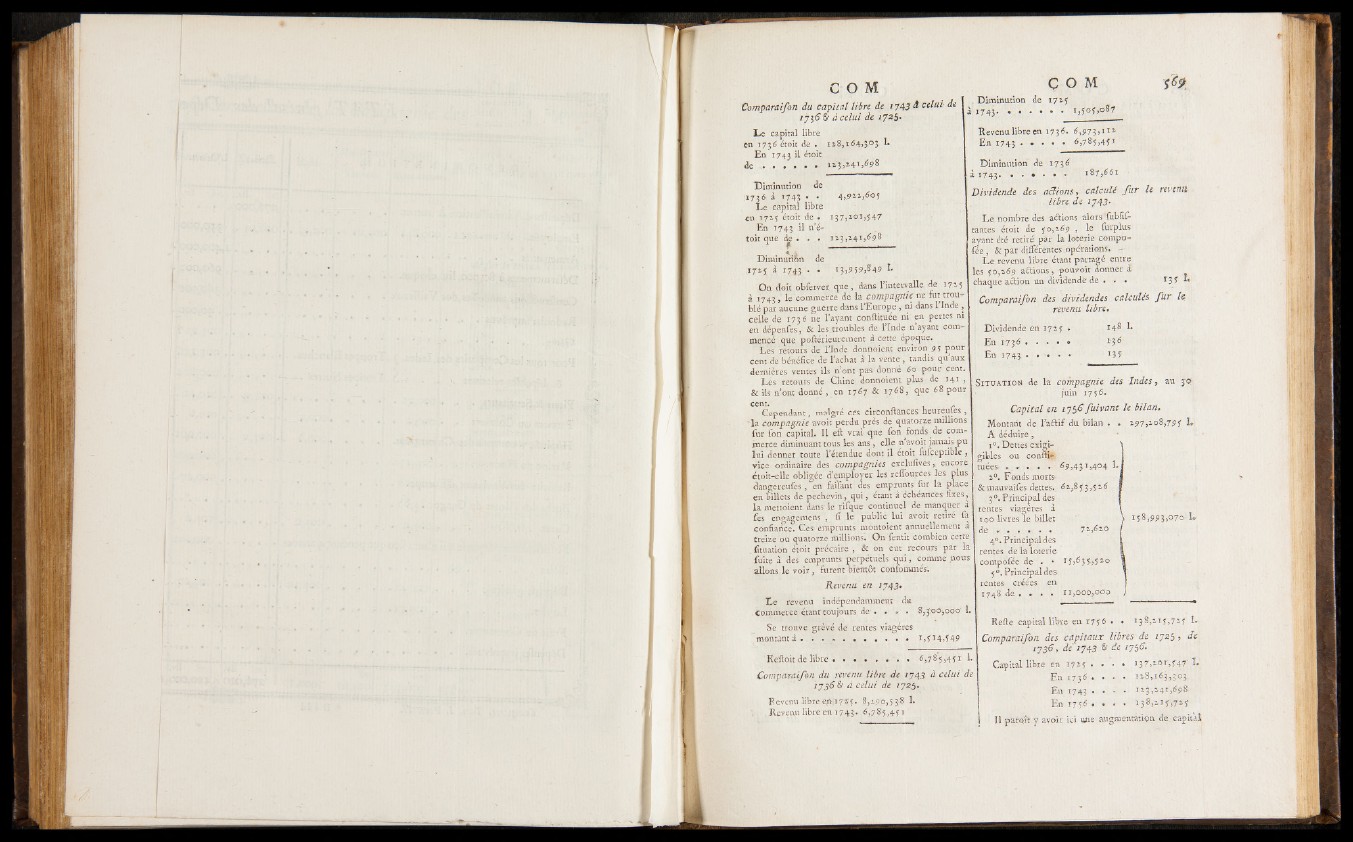 COM
Comparaiſon du capital libre de 1743 à celui de
1736 & à celui de 1725.
Le capital libre
en 1736 étoit de . 128,164,303 l.
En 1743 il étoit
de . . . . . . 123,241,698
Diminution de
1736 à 1743 . . 4,922,605
Le capital libre
en 1725 étoit de . 137,201,547
En 1743 il n'é-
toit que de . . . 123,241,698
Diminution de
1725 à 1743 . . 13,959,849 l.
On doit obſerver que, dans l'intervalle de 1725
à 1743, le commerce de la compagnie ne fut trou-
blé par aucune guerre dans l'Europe, ni dans l'Inde,
celle de 1736 ne l'ayant conſtituée ni en pertes ni
en dépenſes, & les troubles de l'Inde n'ayant com-
mencé que poſtérieurement à cette époque.
Les retours de l'Inde donnoient environ 95 pour
cent de bénéfice de l'achat à la vente, tandis qu'aux
dernières ventes ils n'ont pas donné 60 pour cent.
Les retours de Chine donnoient plus de 141,
& ils n'ont donné, en 1767 & 1768, que 68 pour
cent.
Cependant, malgré ces circonſtances heureuſes,
la compagnie avoit perdu près de quatorze millions
ſur ſon capital. Il eſt vrai que ſon fonds de com-
merce diminuant tous les ans, elle n'avoit jamais pu
lui donner toute l'étendue dont il étoit ſuſceptible,
vice ordinaire des compagnies excluſives, encore
étoit-elle obligée d'employer les reſſources les plus
dangereuſes, en faiſant des emprunts ſur la place
en billets de pechevin, qui, étant à échéances fixes,
la mettoient dans le riſque continuel de manquer à
ſes engagemens, ſi le public lui avoit retiré ſa
confiance. Ces emprunts montoient annuellement à
treize ou quatorze millions. On ſentit combien cette
ſituation étoit précaire, & on eut recours par la
ſuite à des emprunts perpétuels qui, comme nous
allons le voir, furent bientôt conſommés.
Revenu en 1743.
Le revenu indépendamment du
commerce étant toujours de . . . . 8,300,000 l.
Se trouve grévé de rentes viagères
montant à . . . . . . . . . . . 1,514,549
Reſtoit de libre . . . . . . . . 6,785,451 l.
Comparaiſon du revenu libre de 1743 à celui de
1736 & à celui de 1725.
Revenu libre en 1725. 8,290,538 l.
Revenu libre en 1743. 6,785,451
COM 569
Diminution de 1725
à 1743. . . . . . . 1,505,087
Revenu libre en 1736. 6,973,112
En 1743 . . . . . 6,785,451
Diminution de 1736
à 1743. . . . . . . 187,661
Dividende des actions, calculé ſur le revenu
libre de 1743.
Le nombre des actions alors ſubſiſ-
tantes étoit de 50,269, le ſurplus
ayant été retiré par la loterie compo-
ſée, & par différentes opérations.
Le revenu libre étant partagé entre
les 50,269 actions, pouvoit donner à
chaque action un dividende de . . . 135 l.
Comparaiſon des dividendes calculés ſur le
revenu libre.
Dividende en 1725 . 148 l.
En 1736 . . . . . 136
En 1743 . . . . . 135
SITUATION de la compagnie des Indes, au 30
juin 1756.
Capital en 1756 ſuivant le bilan.
Montant de l'actif du bilan . . 297,208,795 l.
A déduire,
1°. Dettes exigi-
gibles ou conſti-
tuées . . . . . . 69,431,404 l.
2°. Fonds morts
& mauvaiſes dettes. 62,853,526
3°. Principal des
rentes viagères à
100 livres le billet
de . . . . . . . 72,620
158,993,070 l.
4°. Principal des
rentes de la loterie
compoſée de . . 15,635,520
5°. Principal des
rentes créées en
1748 de . . . . 11,000,000
Reſte capital libre en 1756 . . 138,215,725 l.
Comparaiſon des capitaux libres de 1725, de
1736, de 1743 & de 1756.
Capital libre en 1725 . . . . 137,201,547 l.
En 1736 . . . . 128,163,303
En 1743 . . . . 123,241,698
En 1756 . . . . 138,215,725
Il paroît y avoir ici une augmentation de capital